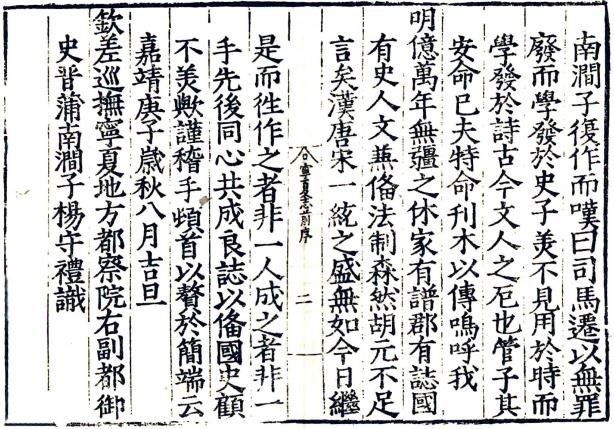 南澗子復作而嘆曰司馬遷以無罪
廢而學發於史子羙不見用於時而
學發於詩古今文人之厄也管子其
安命已夫特命刊木以傳嗚呼我
明億萬年無疆之休家有譜郡有誌國
有史人文兼俻法制森然胡元不足
言矣漢唐宋一統之盛無如今日繼
寧夏志前序
二
是而徃作之者非一人成之者非一
手先後同心共成良誌以俻國史顧
不羙歟謹稽手頓首以贅於簡端云
嘉靖庚子嵗秋八月吉旦
欽差巡撫寧夏地方都察院右副都御
史晉蒲南澗子楊守禮識